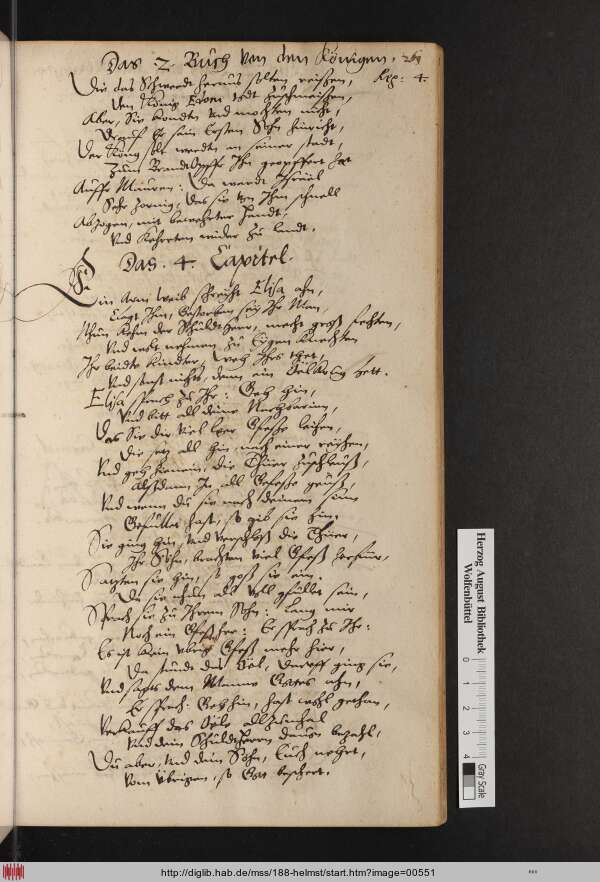 Das 2. Buch von den Königen. 261
Kap: 4.
Die das Schwerdt heraus solten reissen,
Den König Edom todt zuschmeissen,
Aber, Sie kondten Und mochten nicht,
Drauf Er sein Ersten Sohn hinricht,
Der König solt werden an seiner stadt,
Zum Brandtopffer Ihn geopffert hat
Auffr Mauren: Da wardt Israel
Sehr zornig, das sie von Ihm schnell
Abzogen, mit bewehrter Handt,
Und Kehreten wider zu landt.
Das. 4. Capitel.
Ein Arm Weib schreyht Elisa ahn,
Clagt Ihm, Gestorben sey Ihr Man,
Nhun Kohm der Schuldtherr, mache groß fechten,
Und wolt nehmen zu Eygen Knechten
Ihr beidte Kindter, welch Ihrs thet,
Und sonst nichts, denn ein Oelkrug hett.
Elisa sprach zu Ihr: Geh hin,
Und bitt all deine Nachbarinn,
Das Sie dir viel leer Gefesse leihen,
Die setz all hin nach einer reyhen,
Und geh hinein, die Thüer zuschleuß,
Alßdann In all Gefesse geuß,
Und wann du sie nach deinem sinn
Gefüllet hast, so gib sie hin.
Sie ging hin, Und verschloß die Thüer,
Ihr Söhn, brachten viel Gfeß herfüer,
Satzten sie hin, so goß sie ein.
Da sie nhun all voll gfüllet sein,
Sprach sie zu Ihrem Sohn: Lang mir
Noch ein Gfeß her: Er sprach zu Ihr:
Es ist kein übrig Gfeß mehr hier,
Da stundt das Oel, Darauff ging sie,
Und sagts dem Manne Gottes ahn,
Er sprach: Geh hin, hast wohl gethan,
Verkauff das Oele allzumahl
Und dein Schuldtherrn davon bezahl,
Du aber, Und dein Sohn, Euch nehret,
Vom übrigen, so Gott bescheret.
Herzog August Bibliothek
Wolfenbüttel
0 1 2 3 4
Gray Scale
http://diglib.hab.de/mss/188-helmst/start.htm?image=00551